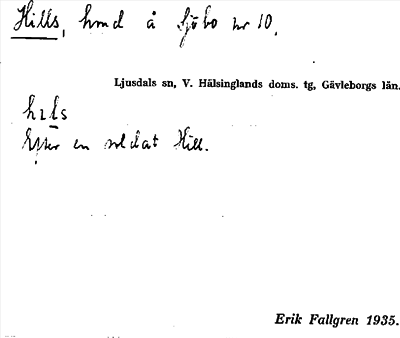 Hills, hmd å Sjöbo nr 10.
Ljusdals sn, V. Hälsinglands doms. tg, Gävleborgs län.
hɪls
Efter en soldat Hill.
Erik Fallgren 1935.